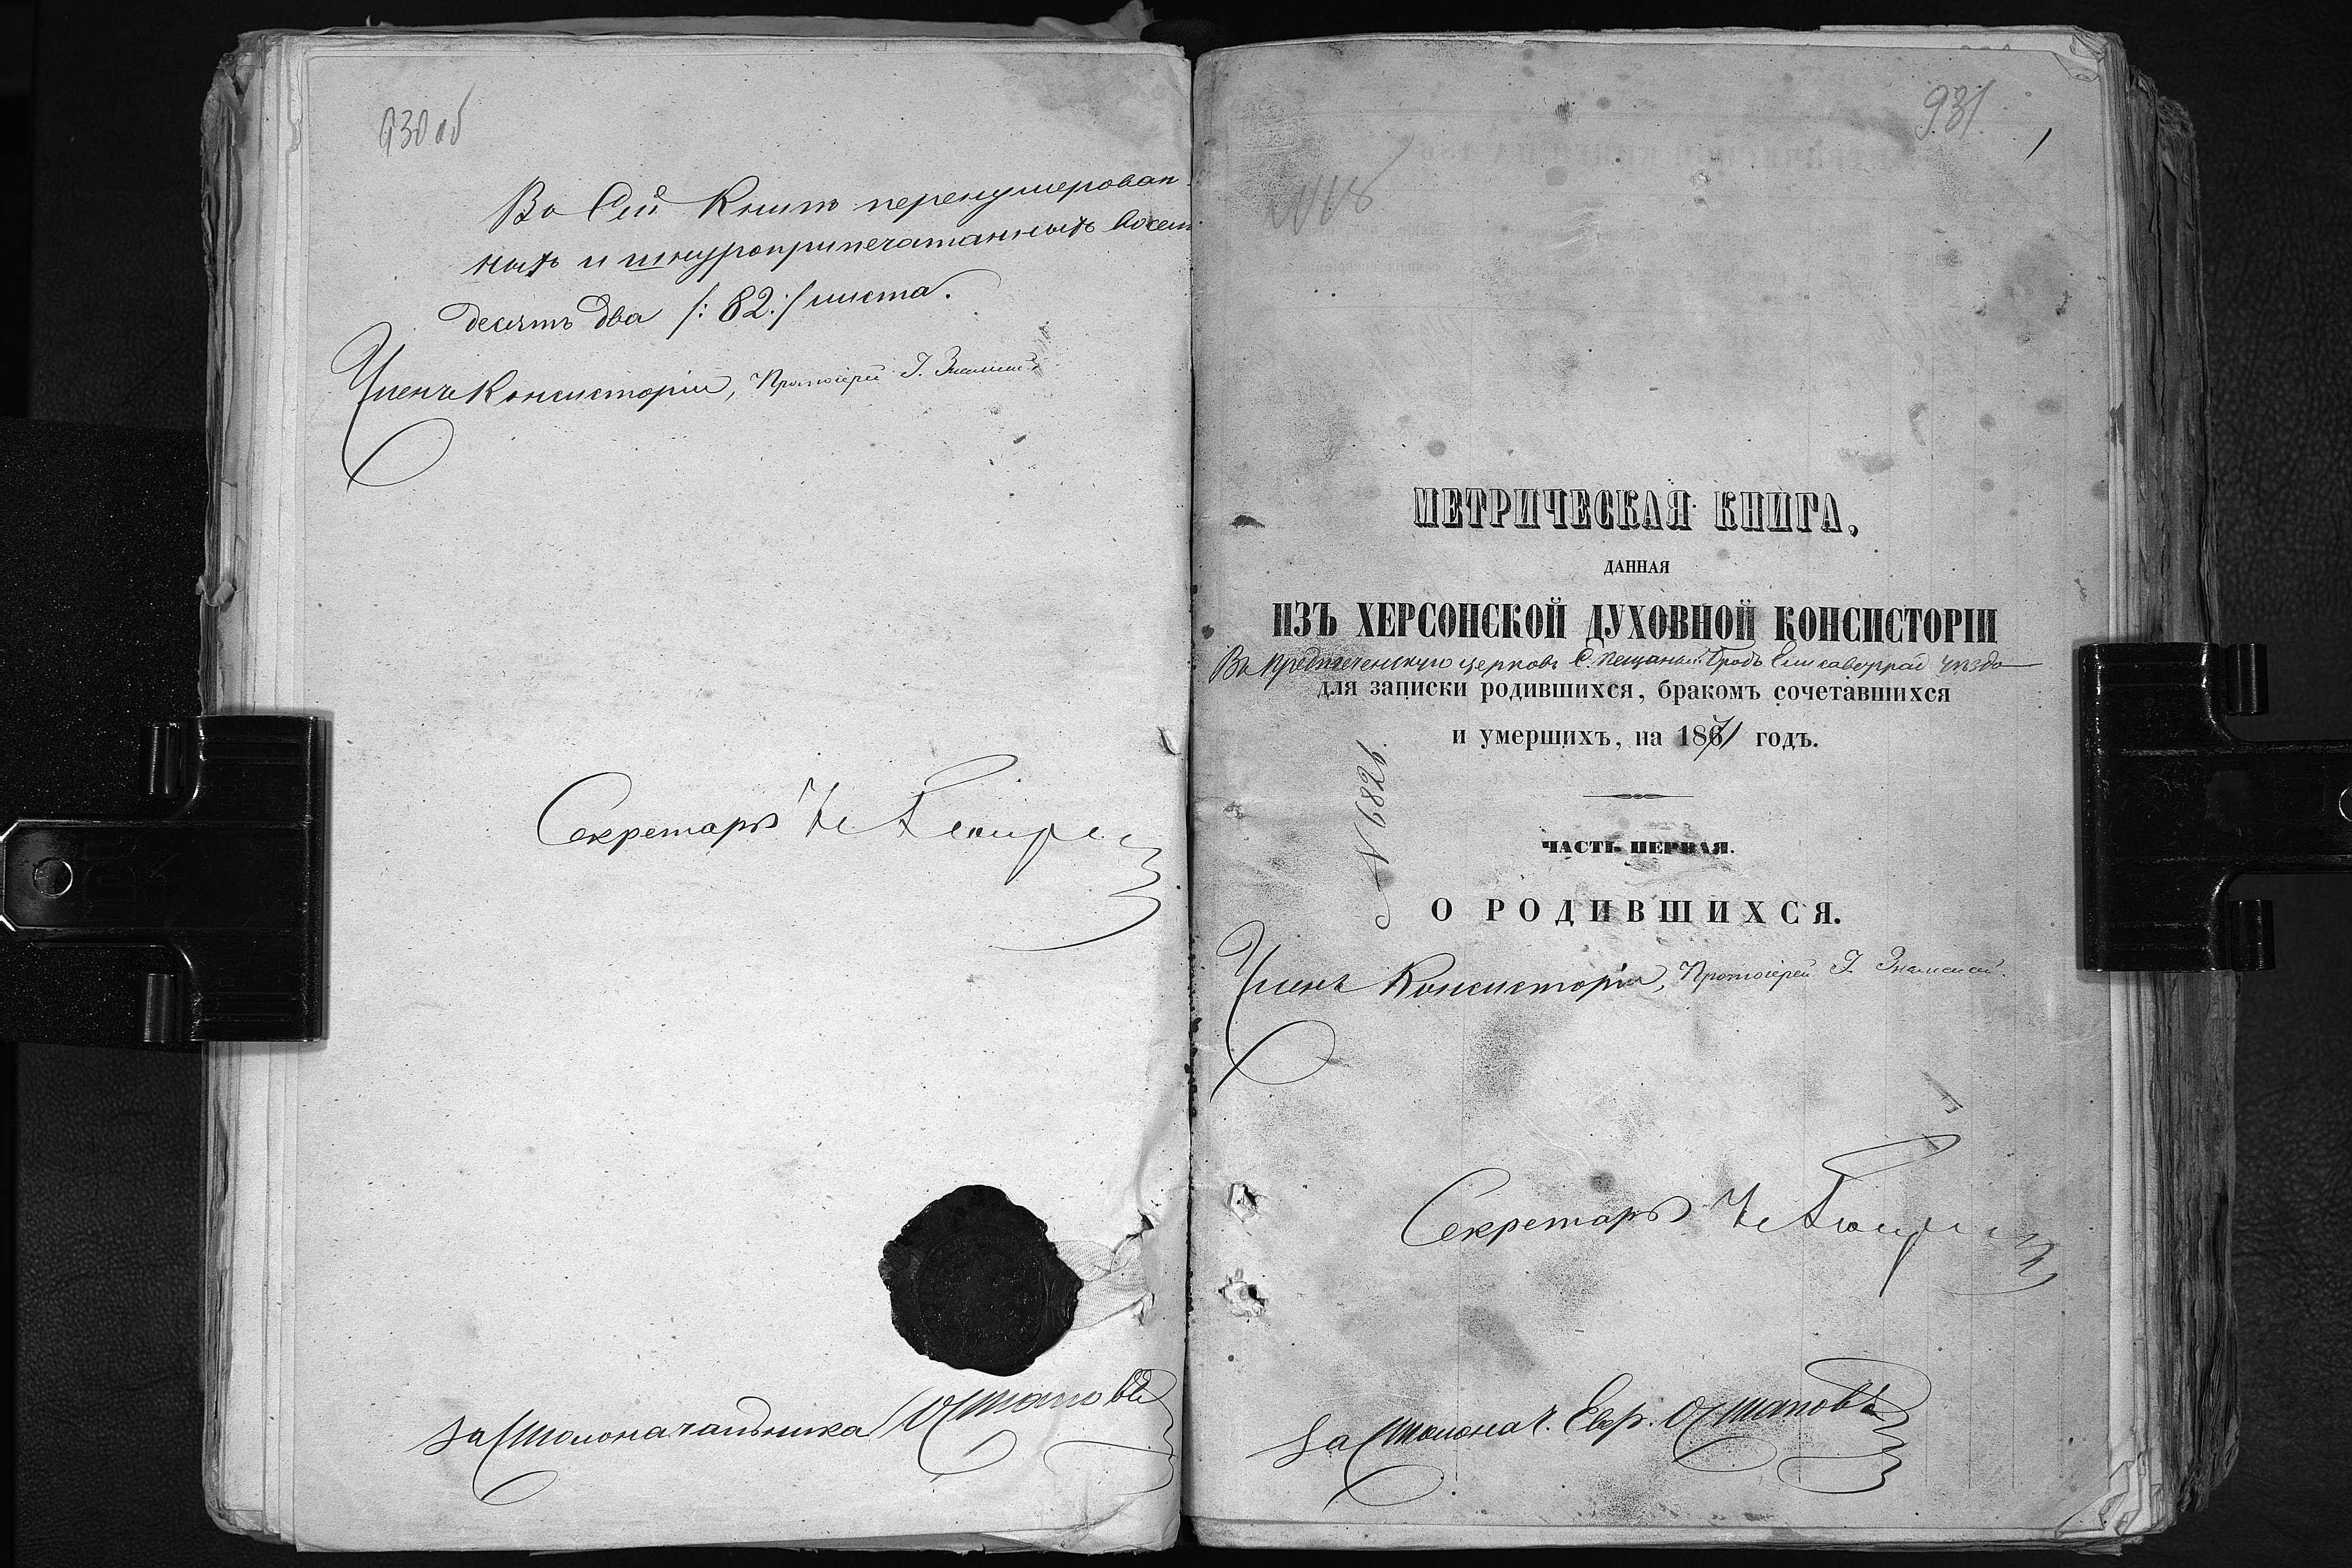 930 об
Во Сей Книге перенумерован-
ныхъ и шнуроприпечатанныхъ восем
десятъ два /: 82 :/ листа.
Членъ Консисторіи, Протоіерей І. Знаменскій
Секретарь
За Столоначальника Остаповъ
931
1
№ 18
МЕТРИЧЕСКАЯ КНИГА,
ДАННАЯ
ИЗЪ ХЕРСОНСКОЙ ДУХОВНОЙ КОНСИСТОРІИ
Въ Предтеченскую церковь С. Пещаный Бродъ Елисаветград уѣзда
для записки родившихся, бракомъ сочетавшихся
и умершихъ, на 1871 годъ.
№ 6826.
ЧАСТЬ ПЕРВАЯ.
О РОДИВШИХСЯ.
Членъ Консисторіи, Протоіерей І. Знаменскій.
Секретарь
За Столонач. Евр. Остаповъ